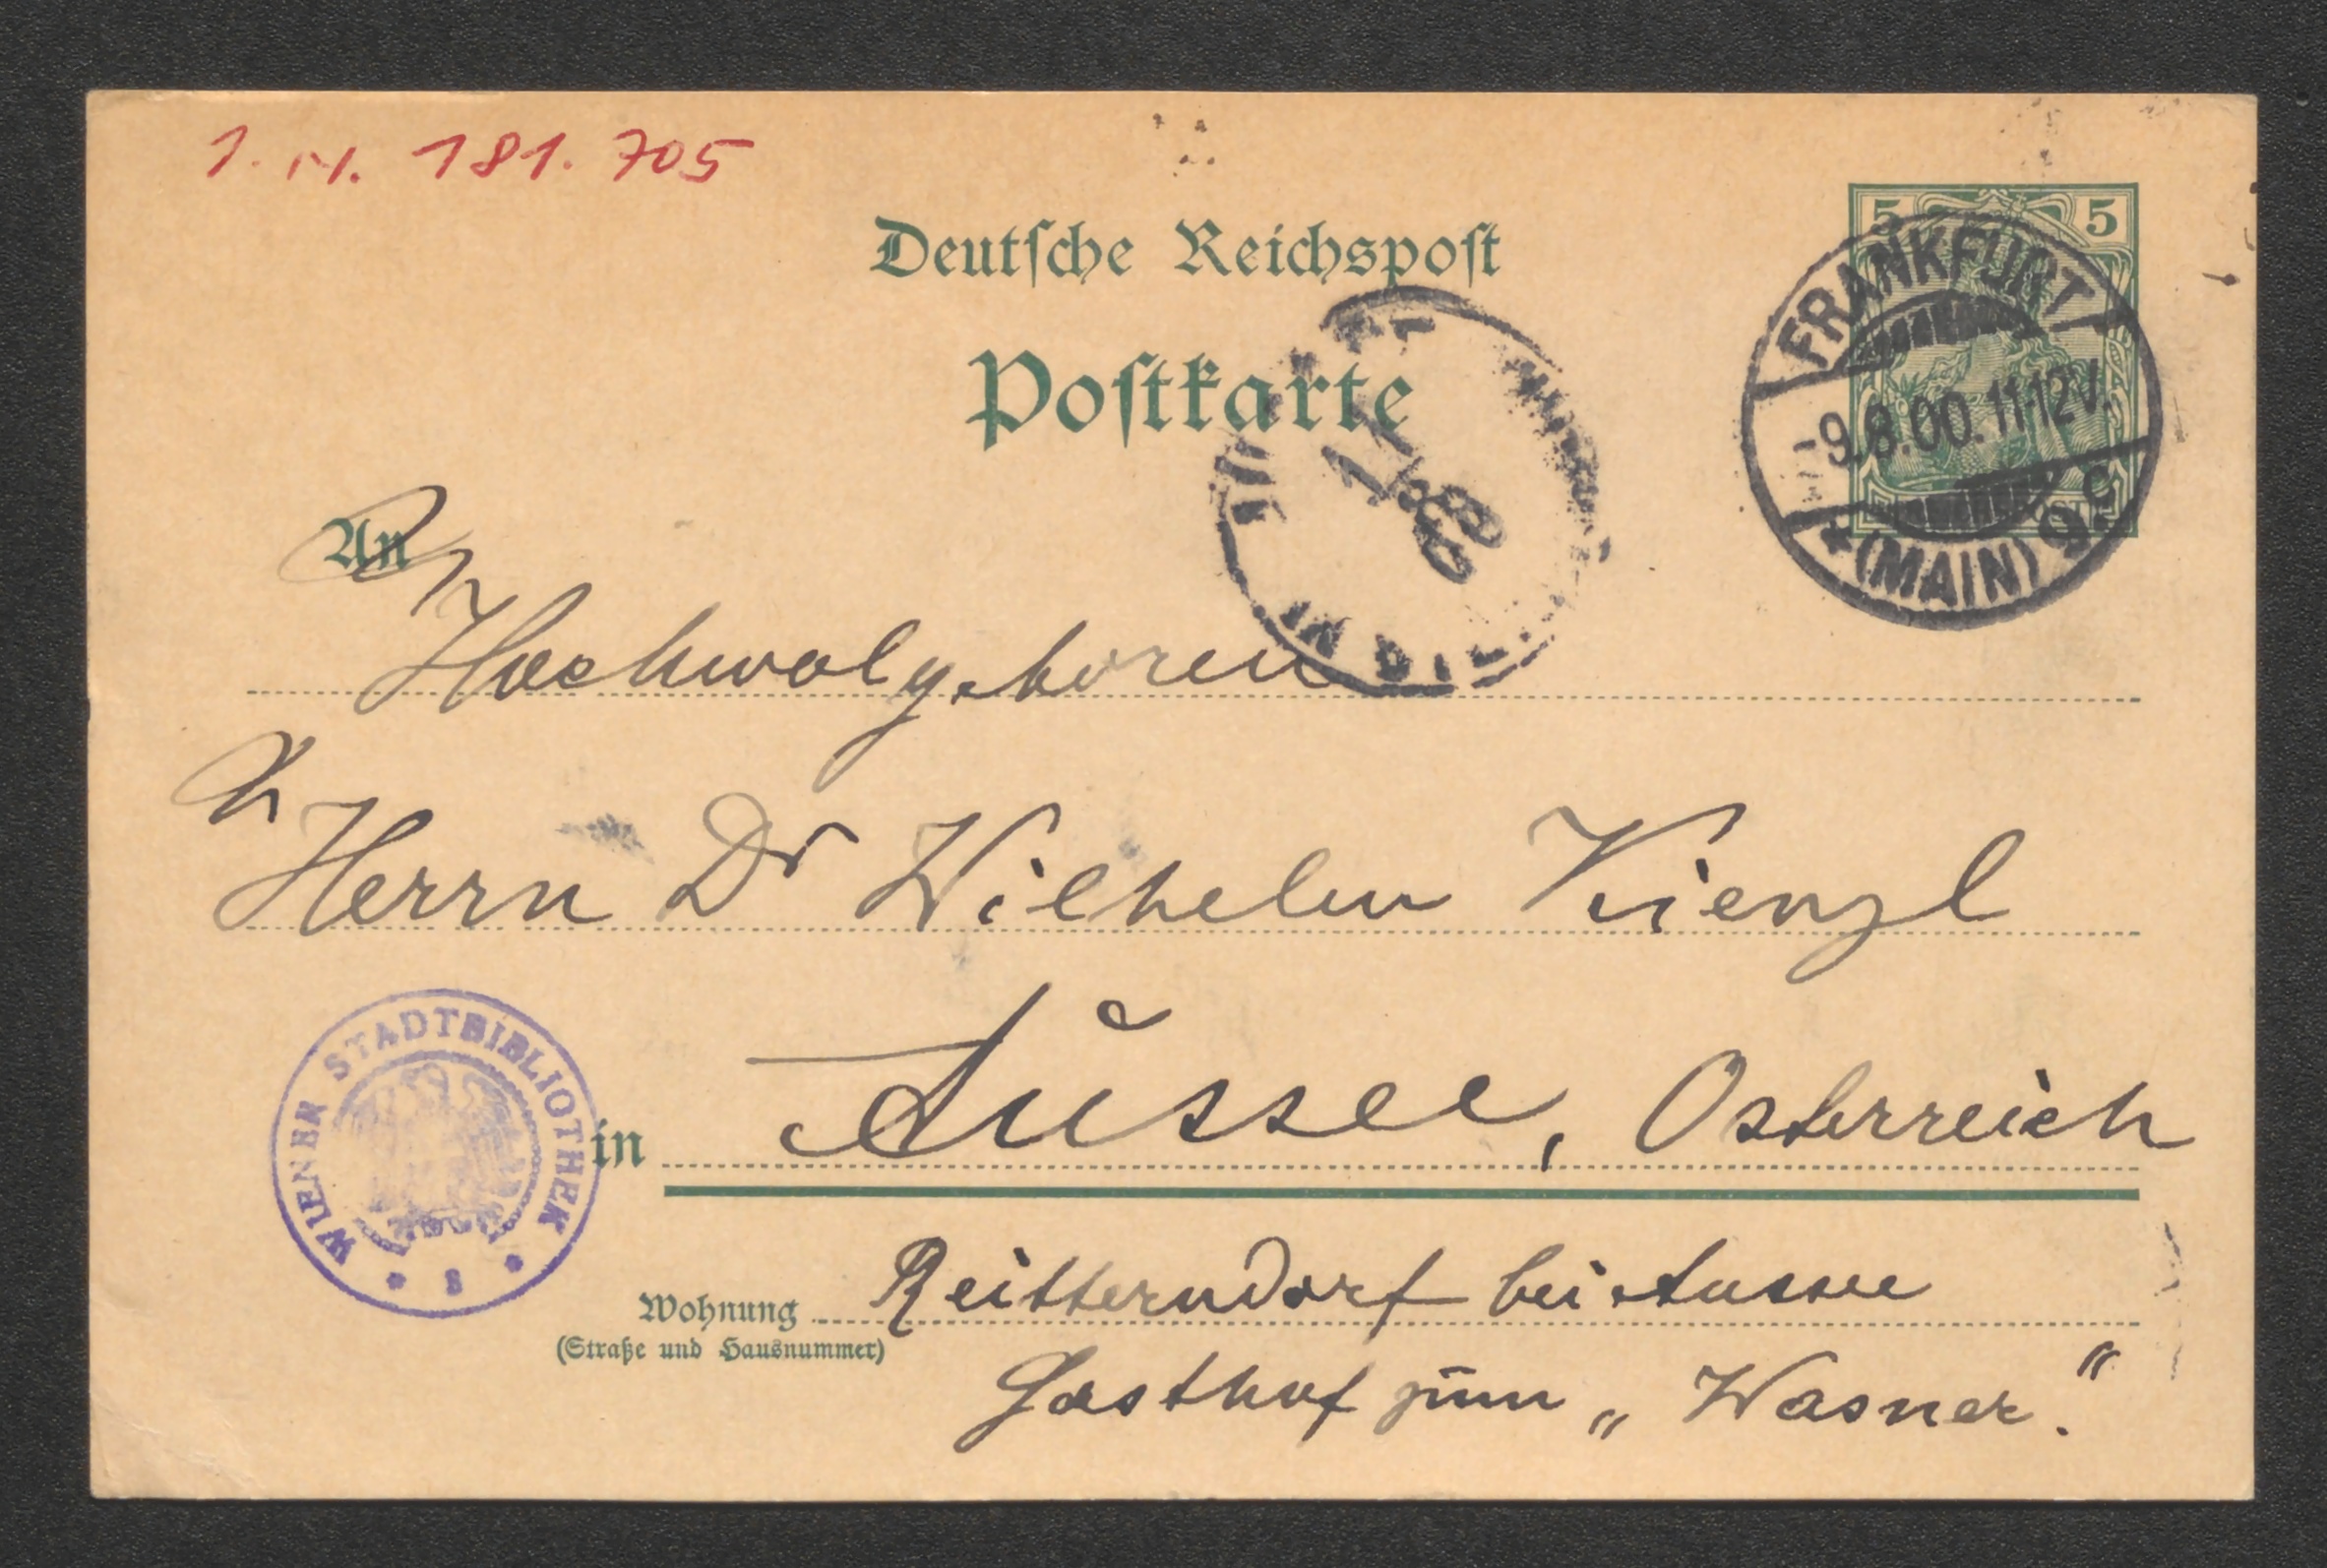 I. N. 181.705
Deutsche Reichspost
5 5
FRANKFURT
-9.8.00.11-12V.
* (MAIN) 9 c
Postkarte
11
8
00
An
Hochwolgeboren
Herrn Dr Wilhelm Kienzl
WIENER STADTBIBLIOTHEK
in Aussee, Osterreich
Wohnung Reitterndorf bei Aussee
(Straße und Hausnummer)
Gasthof zum „Wasner."